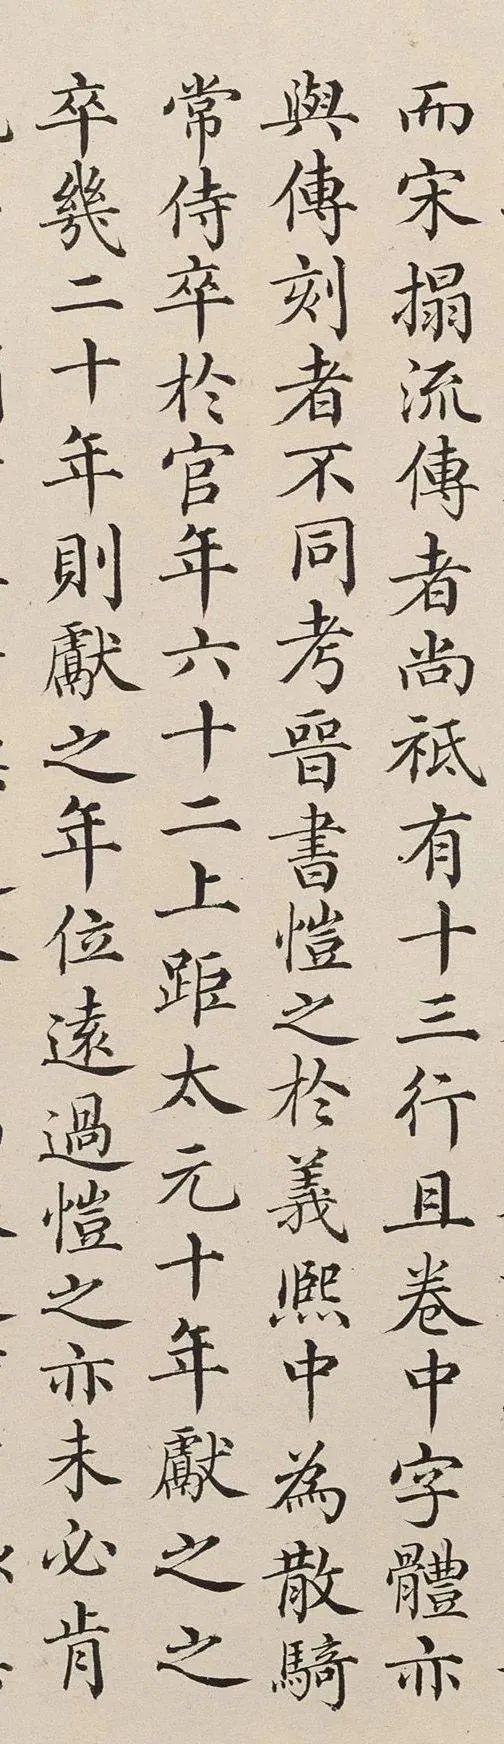 而宋搨流傳者尚祗有十三行且卷中字體亦
與傳刻者不同考晉書愷之於義熙中為散騎
常侍卒於官年六十二上距太元十年獻之之
卒幾二十年則獻之年位遠過愷之亦未必肯